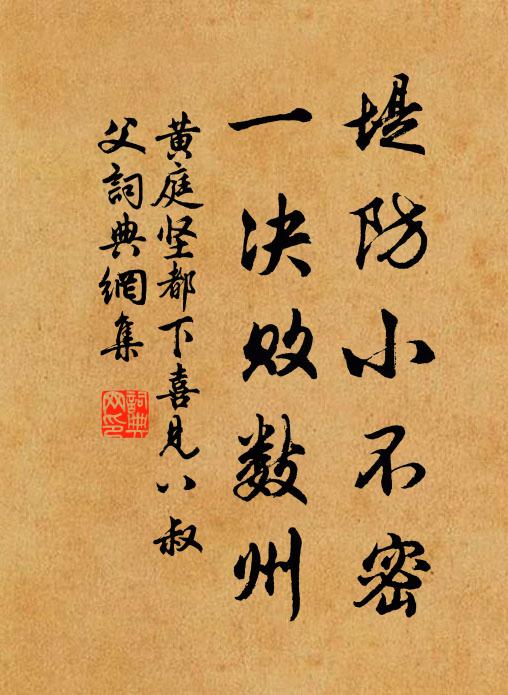 堤防小不密
一决败数州
黄庭坚都下喜见八叔
父詞典網集
詞典
网印